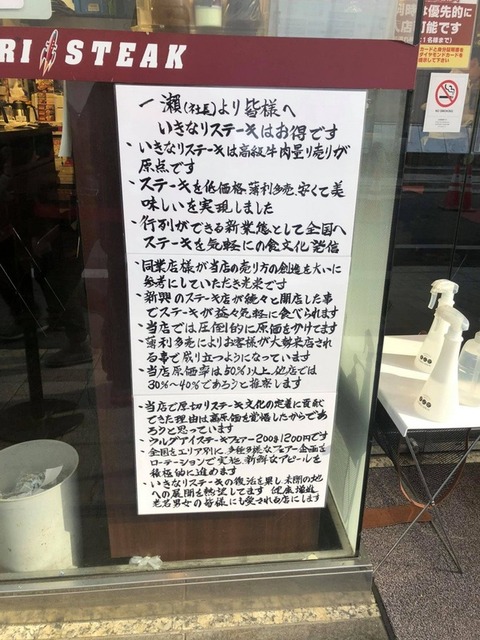 RI STEAK
一瀬(社長)より皆様へ
いきなりステーキはお得です
・いきなりステーキは高級牛肉量り売りが
原点です
・ステーキを低価格、薄利多売、安くて美
味しいを実現しました
・行列ができる新業態として全国へ
ステーキを気軽にの食文化発信
・同業店様が当店の売り方の創造を大いに
参考にしていただき光栄です
・新興のステーキ店が続々と開店した事
でステーキが益々気軽に食べられます
・当店では圧倒的に原価をかけてます
・薄利多売によりお客様が大勢来店され
る事で成り立つようになっています
・当店原価率は50%以上、他店では
30%〜40%であろうと推察します
・当店で厚切りステーキ文化の定着に貢献
できた理由は高原価を覚悟したからであ
ろうと思っています
・ワイルグアイステーキフェアー200g1200円です
・全国をエリア別に、多種多様なフェアー企画を
ローテーションで実施、新鮮なアピールを
積極的に進めます
・いきなりステーキの復活を果し、未開の地
への展開を熱望してます
老若男女の皆様にも愛される店にします
は優先的に
可能です
1名様まで)
NO SMOKING